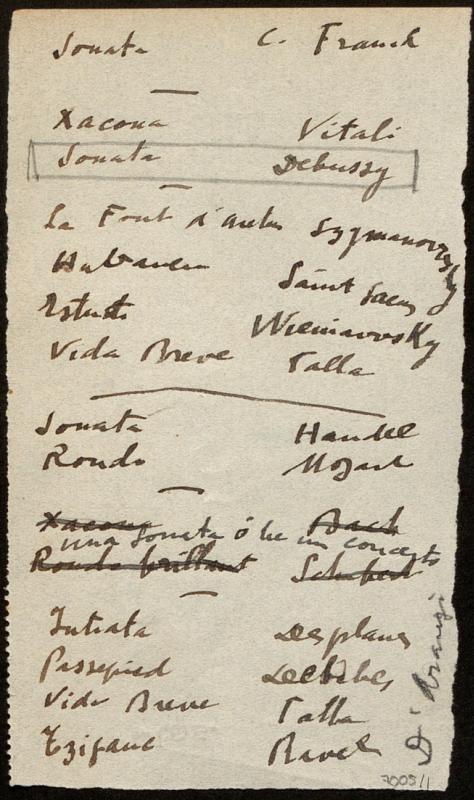 Sonata C. Franck
Xacona Vitali
Sonata Debussy
La Font d'aretus Szymanowsky
Habanera Saint Saens
Estudi Wieniawsky
Vida Breve Falla
Sonata Handel
Rondo Mozart
Xacona Bach
una Sonata ó be un concerto
Rondo brillant Schubert
Intrata Desplanes
Passepied Delibes
Vida Breve Falla
Tzigane Ravel
D'Aranyi
7005/1